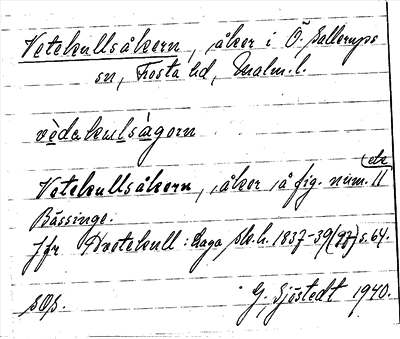 Vetekullsåkern, åker i Ö. Sallerups
sn, Frosta hd, Malm. l.
vèdəkulsàgorn
Vetekullsåkern, åker å fig. num. 11 (etc
Bässinge.
Jfr Hvetekull: Laga sk.h. 1837-39 s. 64.
G. Sjöstedt 1940.